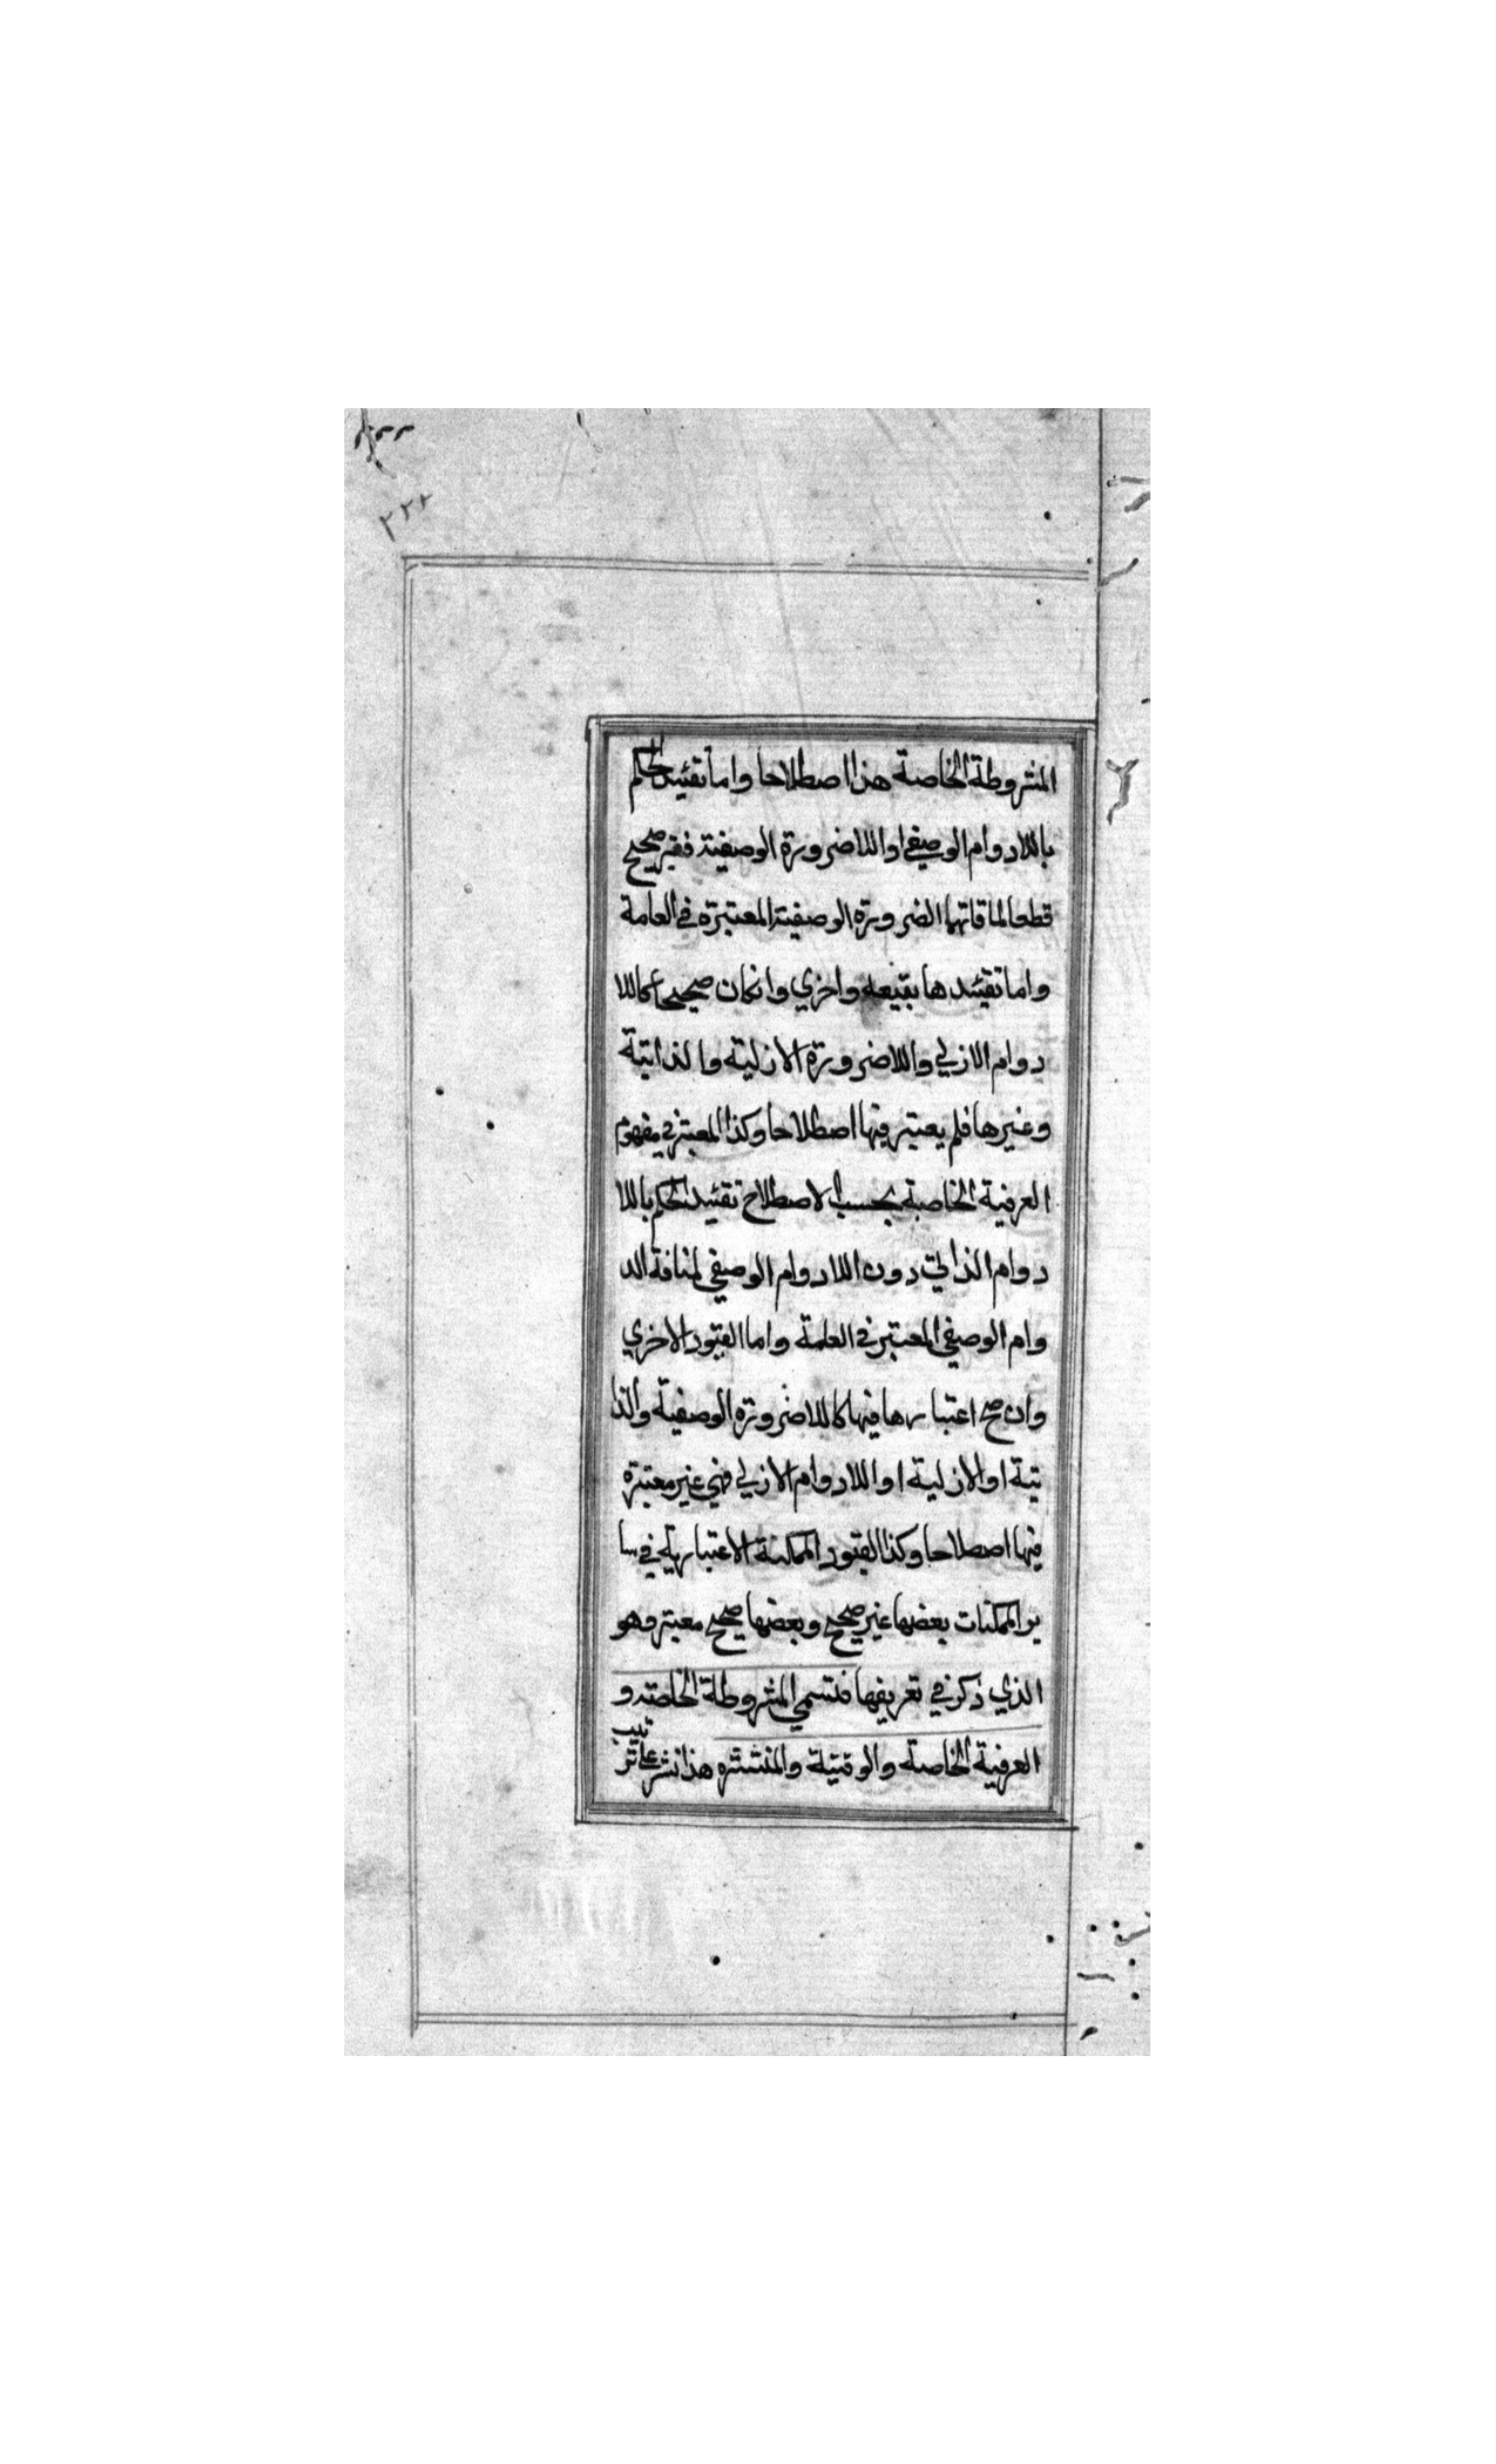 ٢٢٢
المشروطة الخاصة هذا اصطلاحا واما تقئيد الحكم
باللادوام الوصيفي او اللاضرورة الوصفية فغير صحيح
قطعا لما قاتها الضرورة الوصفية المعتبرة في العامة
واما تقئيدها بقيعه واخري وانكان صحيحا كاللا
دوام الازلي واللاضرورة الازلية والذاتية
وغيرها فلم يعتبر فيها اصطلاحا وكذا المعتبر في مفهوم
العرفية الخاصة بحسب الاصطلاح تقئيد الحكم باللا
دوام الذاتي دون اللادوام الوصفي لمنافة الد
وام الوصفي المعتبر في العلمة واما القيود الاخري
وان صح اعتبارها فيها كاللاضرورة الوصفية والذا
تية او الازلية او اللادوام الازلي فهي غير معتبرة
فيها اصطلاحا وكذا القيود الممكنة الاعتبارية في سا
ير الممكنات بعضها غير صحيح وبعضها صحيح معتبر وهو
الذي ذكر في تعريفها فتسمي المشروطة الخاصة و
العرفية الخاصة والوقتية والمنتشره هذا نشر علي تر
تيب